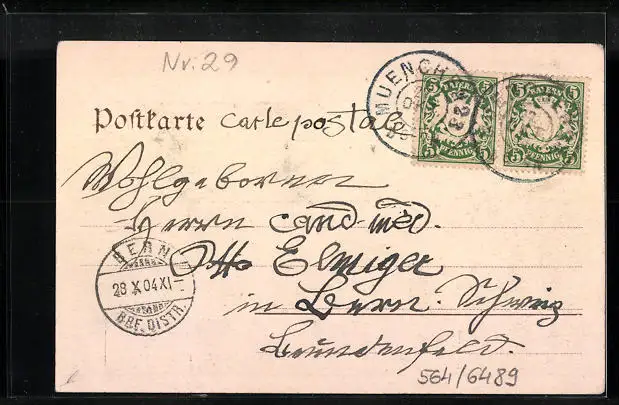 Nr. 29
MUENCHEN
BAYERN 5 5 PFENNIG
BAYERN 5 5 PFENNIG
Postkarte carte postale
Wohlgeboren
Herrn cand. med.
Otto Elmiger
in Bern. Schweiz
BERN
28 X 04 XI-
BRF. DISTR.
564/6489